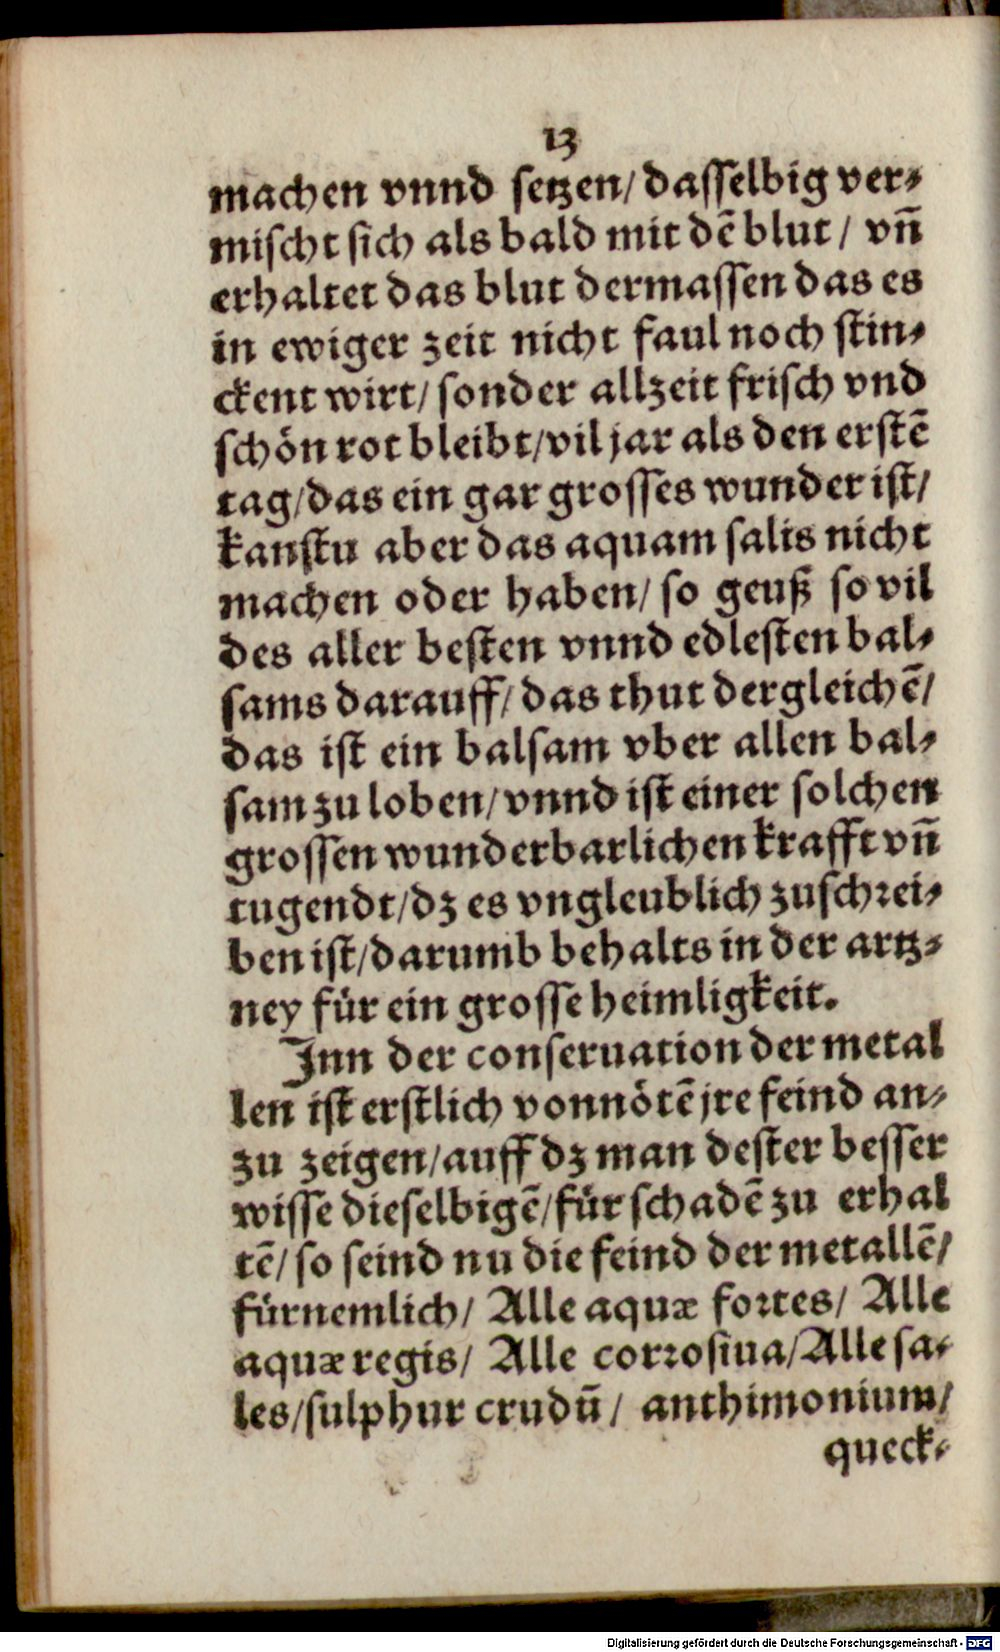 13
machen vnnd setzen/ dasselbig ver⸗
mischt sich als bald mit dē blut / vn̄
erhaltet das blut dermassen das es
in ewiger zeit nicht faul noch stin⸗
ckent wirt/ sonder allzeit frisch vnd
schön rot bleibt/ vil jar als den erstē
tag/ das ein gar grosses wunder ist/
kanstu aber das aquam salis nicht
machen oder haben/ so geuß so vil
des aller besten vnnd edlesten bal⸗
sams darauff/ das thut dergleichē/
das ist ein balsam vber allen bal⸗
sam zu loben/ vnnd ist einer solchen
grossen wunderbarlichen krafft vn̄
tugendt/ dz es vngleublich zuschrei⸗
ben ist/ darumb behalts in der artz⸗
ney für ein grosse heimligkeit.
Inn der conseruation der metal
len ist erstlich vonnötē jre feind an⸗
zu zeigen/ auff dz man dester besser
wisse dieselbigē/ für schadē zu erhal
tē/ so seind nu die feind der metallē/
fürnemlich/ Alle aquæ fortes/ Alle
aquæ regis/ Alle corrosiua/ Alle sa⸗
les/ sulphur crudū/ anthimonium/
queck⸗
Digitalisierung gefördert durch die Deutsche Forschungsgemeinschaft - DFG